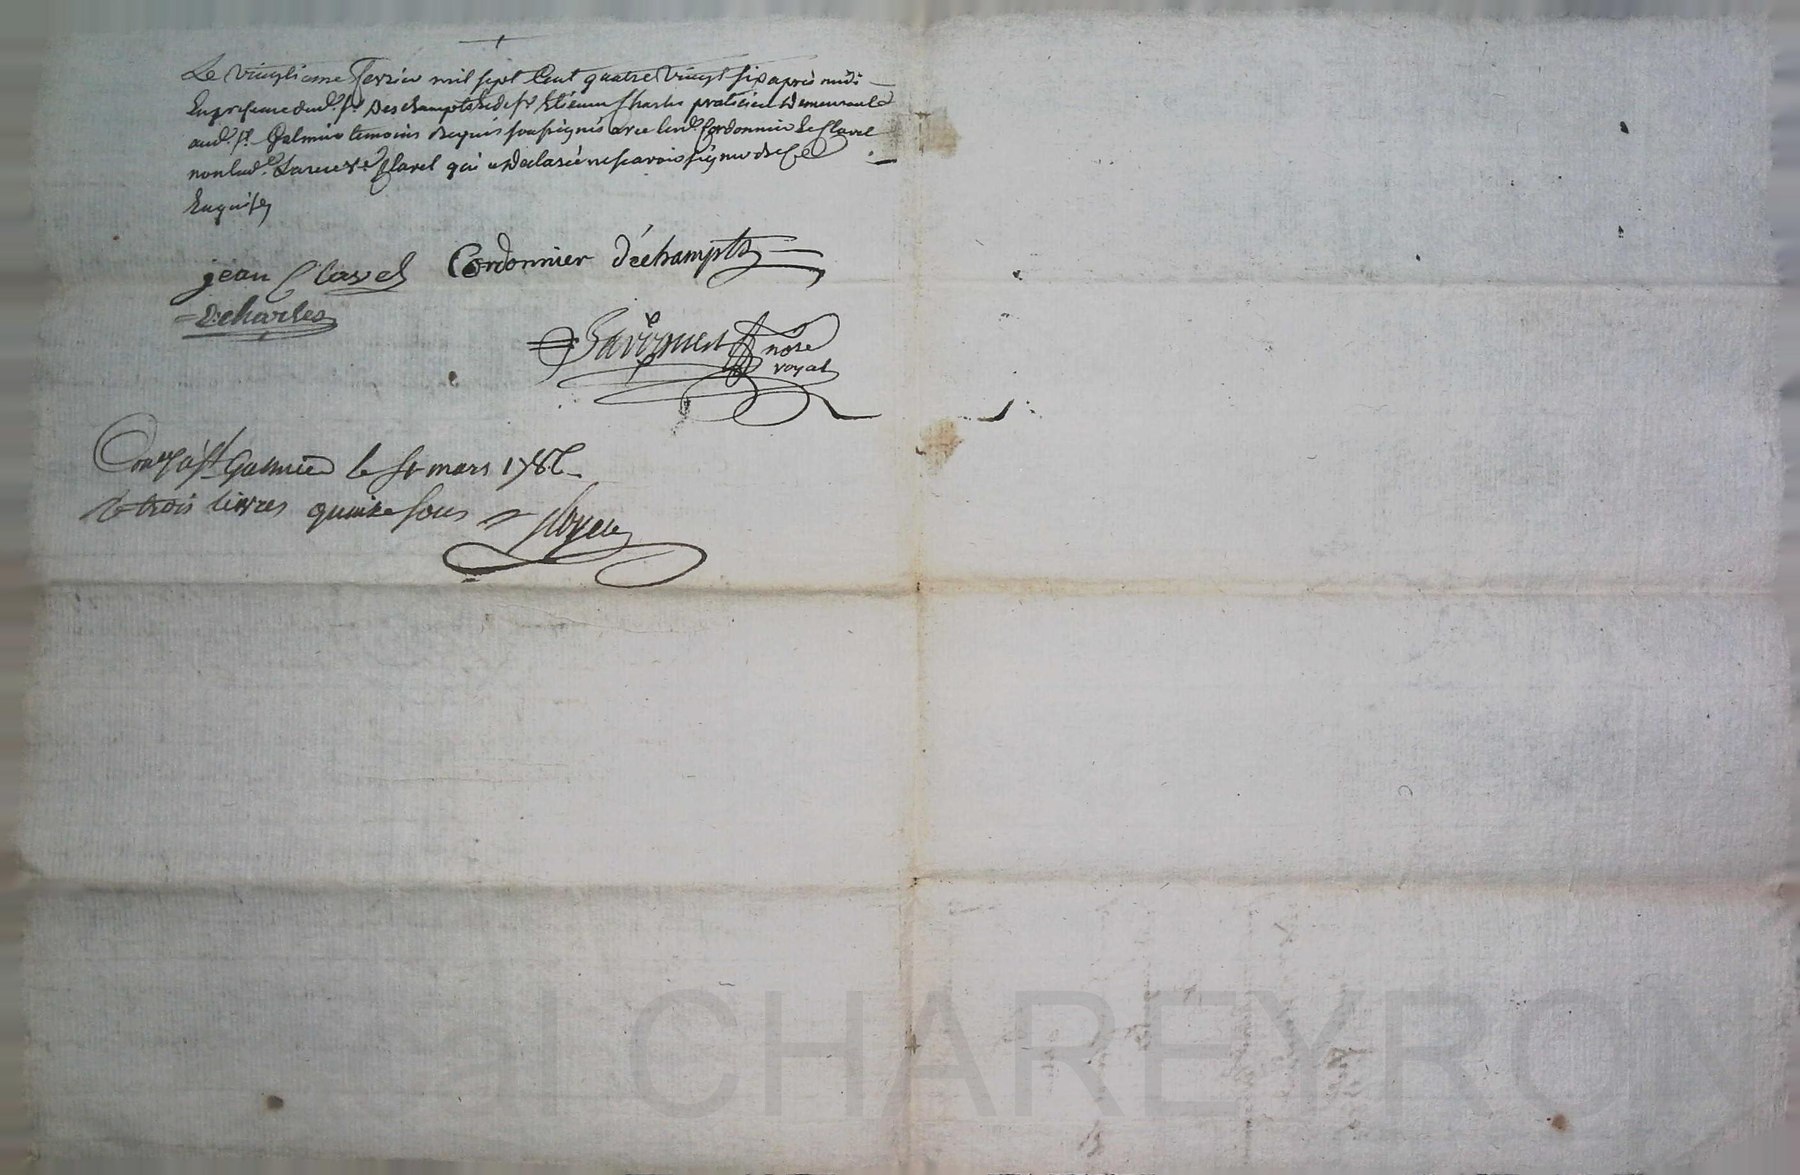 Le vingtieme fevrier mil sept cent quatre vingt six apres midi
En presence dud. Sr. Deschampts & de Sr. Etienne Charles praticien demeurant
aud. St. Galmier temoins requis soussignés avec lesd. Cordonnier & Clavel
non lad. ve. Clavel qui a déclaré ne scavoir signer de ce
Enquise
jean Clavel Cordonnier déchampts
Charles
nore
royal
St Galmier le mars 1786
trois livres quinze sous
CHAREYRON